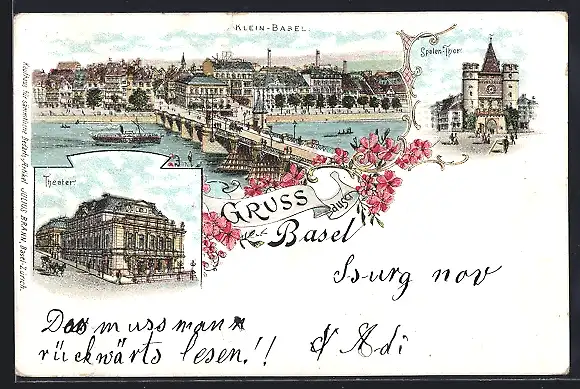 KLEIN-BASEL.
Spalen-Thor.
Theater.
GRUSS
aus
Basel
Ssurg nov
Das muss man
rückwärts lesen!!
Adi
JULIUS BRANN, Basel-Zürich.